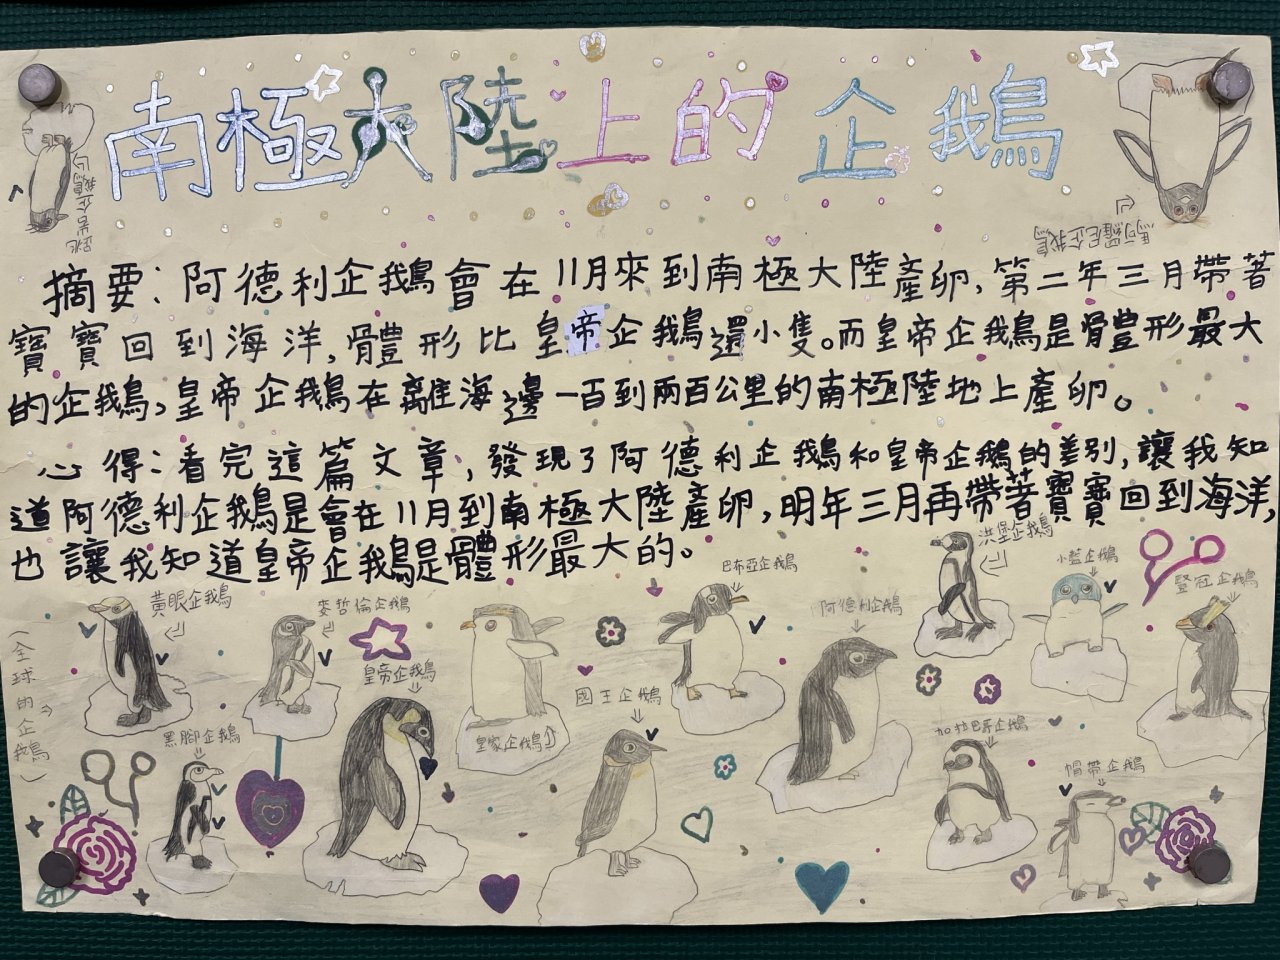 南極大陸上的企鵝
跳岩企鵝
馬可羅尼企鵝
摘要：阿德利企鵝會在11月來到南極大陸產卵，第二年三月帶著
寶寶回到海洋，體形比皇帝企鵝還小隻。而皇帝企鵝是體形最大
的企鵝，皇帝企鵝在離海邊一百到兩百公里的南極陸地上產卵。
心得：看完這篇文章，發現了阿德利企鵝和皇帝企鵝的差別，讓我知
道阿德利企鵝是會在11月到南極大陸產卵，明年三月再帶著寶寶回到海洋，
也讓我知道皇帝企鵝是體形最大的。
（全球的企鵝）
黃眼企鵝
麥哲倫企鵝
皇帝企鵝
黑腳企鵝
皇家企鵝
國王企鵝
巴布亞企鵝
阿德利企鵝
洪堡企鵝
小藍企鵝
豎冠企鵝
加拉巴哥企鵝
帽帶企鵝